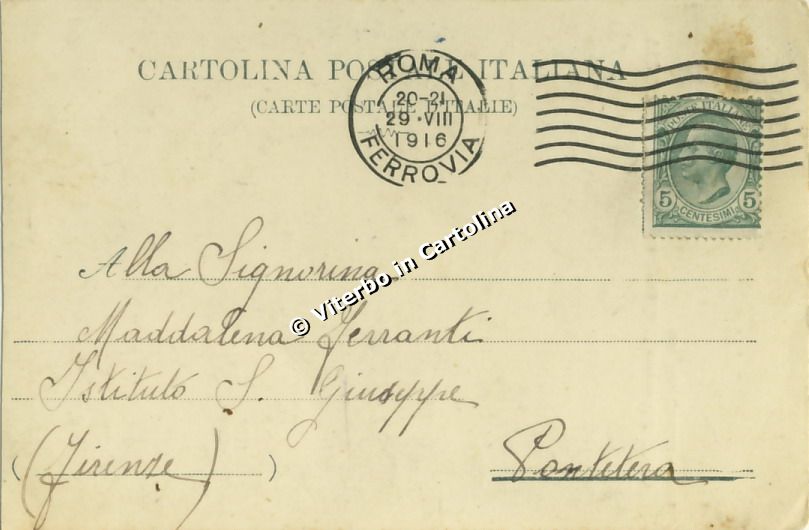 CARTOLINA POSTALE ITALIANA
(CARTE POSTALE D'ITALIE)
ROMA
20-21
29·VIII
1916
FERROVIA
POSTE ITALIANE
5 CENTESIMI 5
© Viterbo in Cartolina
Alla Signorina
Maddalena Ferranti
Istituto S. Giuseppe
(Firenze) Pontetera